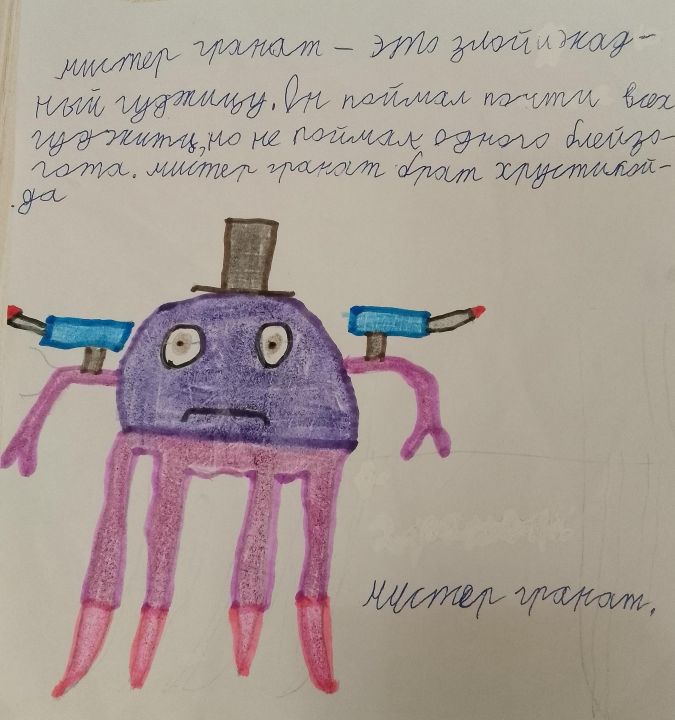 мистер гранат – это злой и жад-
ный гуджицу. Он поймал почти всех
гуджитц, но не поймал одного блейзо-
гота. мистер гранат брат хрустикой-
да.
Мистер гранат.